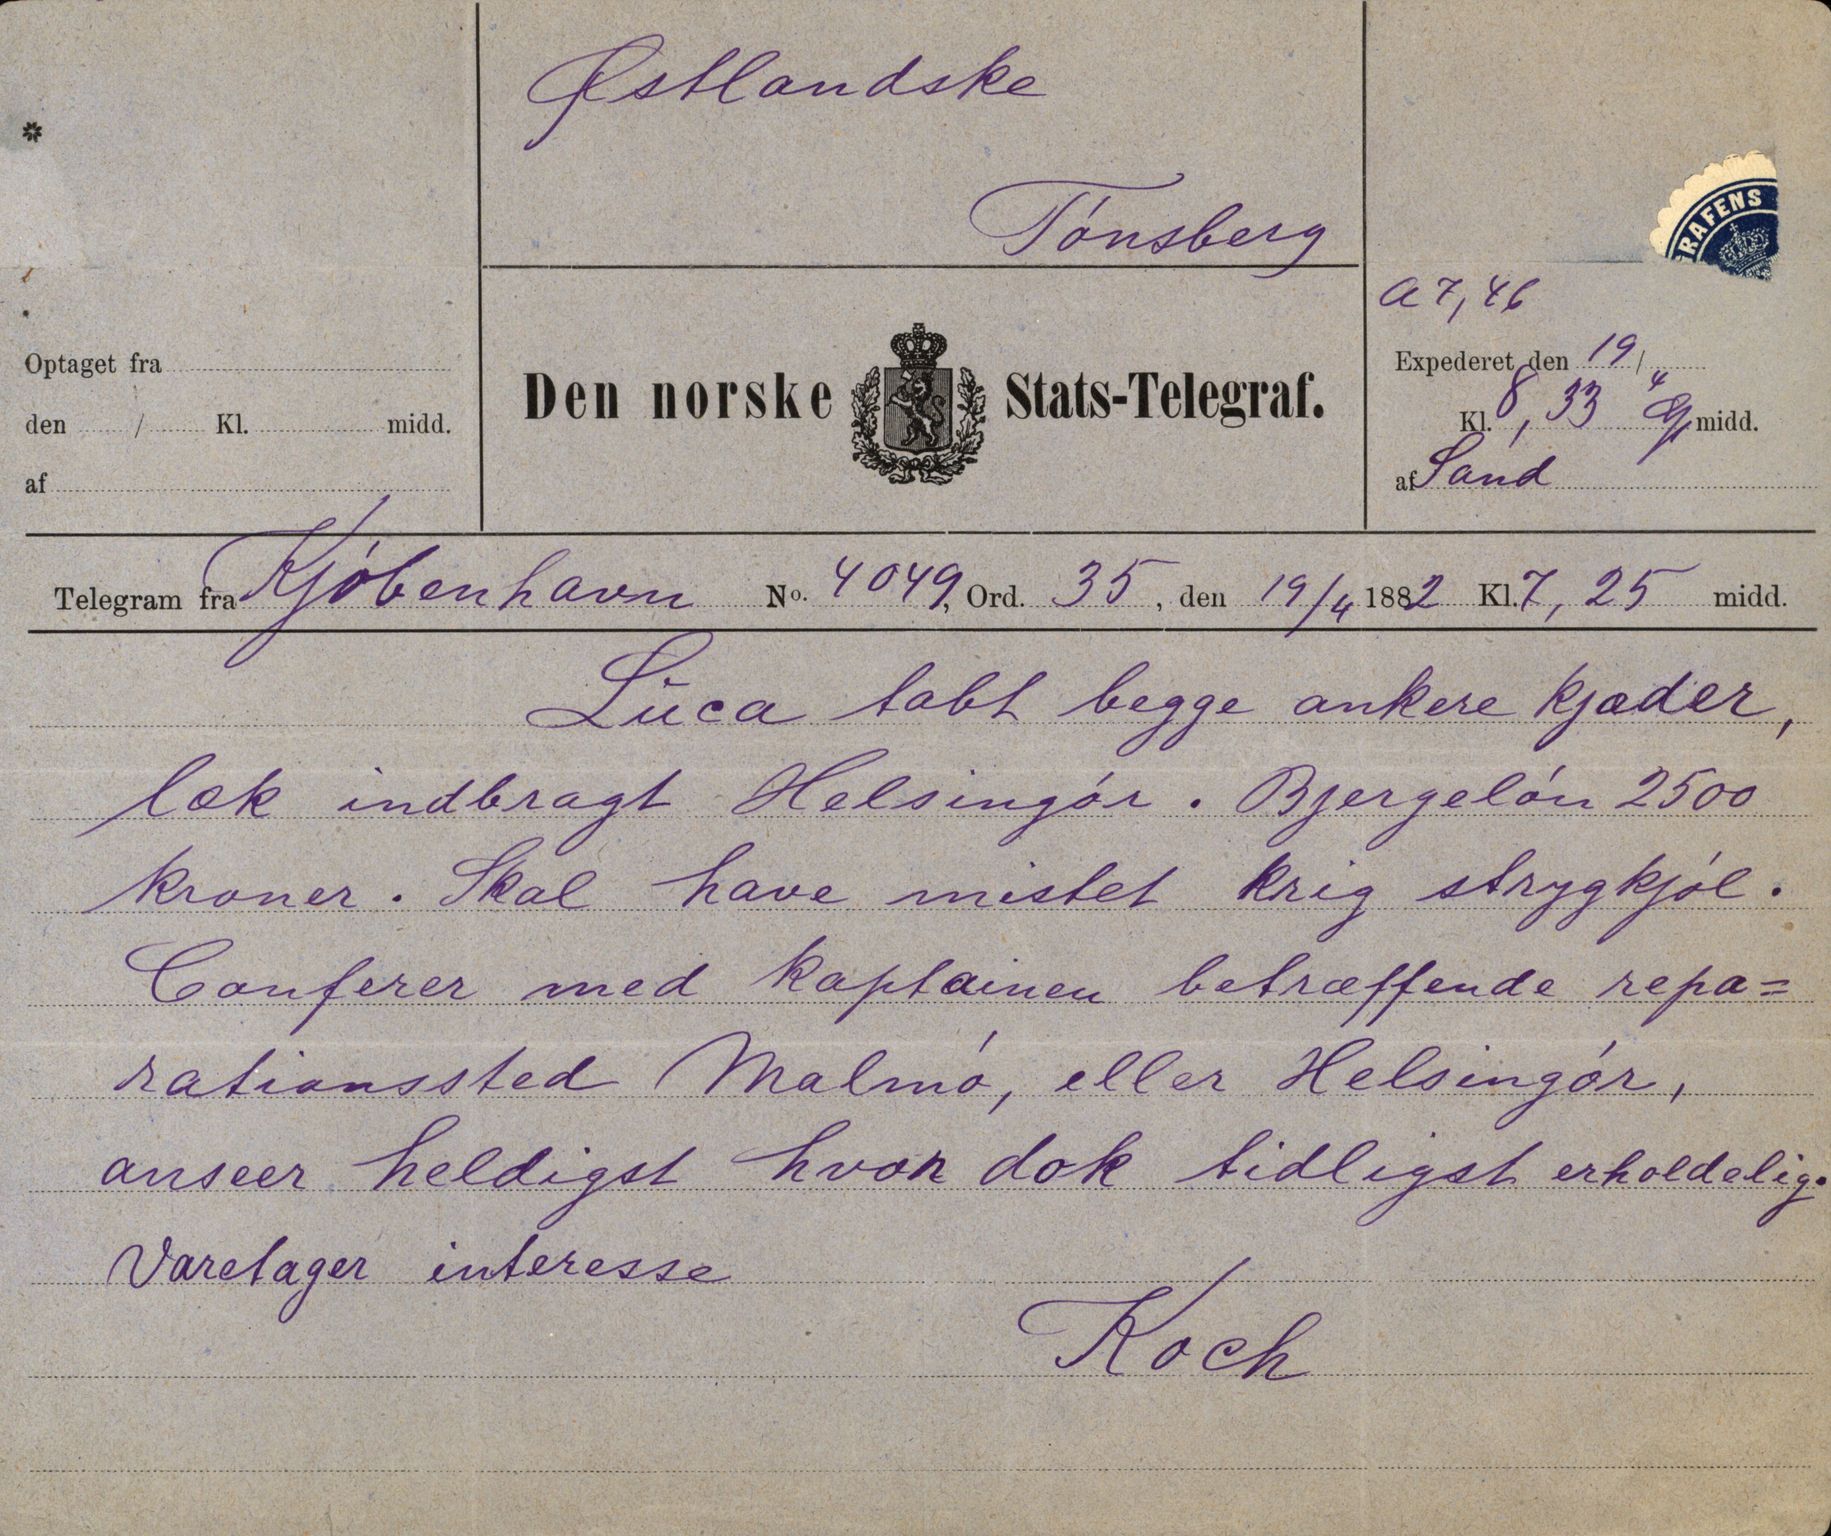 Østlandske
Tónsberg
RAFENS
a 7,46
Optaget fra
den / Kl. midd.
af
Den norske Stats-Telegraf.
Expederet den 19/4
Kl. 8,33 midd.
af Sand
Telegram fra Kjóbenhavn No. 4049, Ord. 35, den 19/4 1882 Kl. 7,25 midd.
Luca tabt begge ankere kjæder,
læk indbragt Helsingór. Bjergelón 2500
kroner. Skal have mistet krig strygkjól.
Conferer med kaptainen betræffende repa=
rationssted Malmó, eller Helsingór,
anseer heldigst hvor dok tidligst erholdelig.
Varetager interesse
Koch